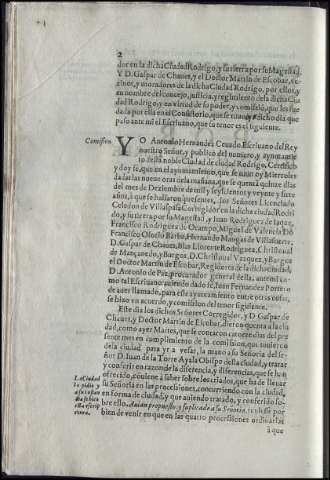 2
dor en la dicha Ciudad Rodrigo, y su tierra por su Magestad.
Y D. Gaspar de Chaues, y el Doctor Martin de Escobar, ve-
zinos, y moradores de la dicha Ciudad Rodrigo, por ellos, y
en nombre del concejo, justicia, y regimiento de la dicha Ciu-
dad Rodrigo, y en virtud de su poder, y comission, que les fue
dada por ella en el Consistorio, que se tuuo este dicho dia que
passo ante mi el Escriuano, que su tenor es el siguiente.
Comission.
YO Antonio Hernandez Ceuado Escriuano del Rey
nuestro Señor, y publico del numero, y ayuntamien-
to desta noble Ciudad de ciudad Rodrigo, Certifico
y doy fe, que en el ayuntamiento, que se tuuo oy Miercoles
dadas las nueue oras de la mañana, que se quentã quinze dias
del mes de Deziembre de mil y seyscientos y veynte y siete
años, à que se hallaron presentes, los Señores Licenciado
Celedon de Villasaña Corregidor en la dicha ciudad Rodri-
go, y su tierra por su Magestad, y Iuan Rodriguez de Iaque,
Francisco Rodriguez de Ouando, Miguel de Valencia Dõ
Francisco Olosso Barba, Hernando Mangas de Villafuerte,
D. Gaspar de Chaues, Blas Llorente Rodriguez, Christoual
de Mançanedo, y Burgos, D. Christoual Vazquez, y Bargas
el Doctor Martin de Escobar, Regidores de la dicha ciudad,
D. Antonio de Paz, procurador general della, ante mi co-
mo tal Escriuano auiendo dado fe, Iuan Fernandez Portero
de auer llamado, para este ayuntamiento entre otras cosas,
se hizo en acuerdo, y comission del tenor siguiente.
Este dia los dichos Señores Corregidor, y D. Gaspar de
Chaues, y Doctor Martin de Escobar, dieron quenta a la ciu-
dad, como ayer Martes, que se contaron catorce dias del pre-
sente mes en cumplimiento de la comission, que tuuieron
de la ciudad para yr a vesar, la mano a su Señoria del se-
ñor D. Iuan de la Torre Ayala Obispo desta ciudad, y tratar
y conferir en razon de la diferencia, y diferencias, que se han
ofrecido, cõuiene à saber sobre los criados, que ha de lleuar
su Señoria en las processiones, concurriendo con la ciudad,
en forma de ciudad, y que auiendo tratado, y conferido so-
bre ello. Auian propuesto y suplicado a su Señoria, tuuiesse por
bien de venir en que en las quatro processiones ordinarias
La Ciudad
lo pidio y
a su
dia
esta escrip
à que